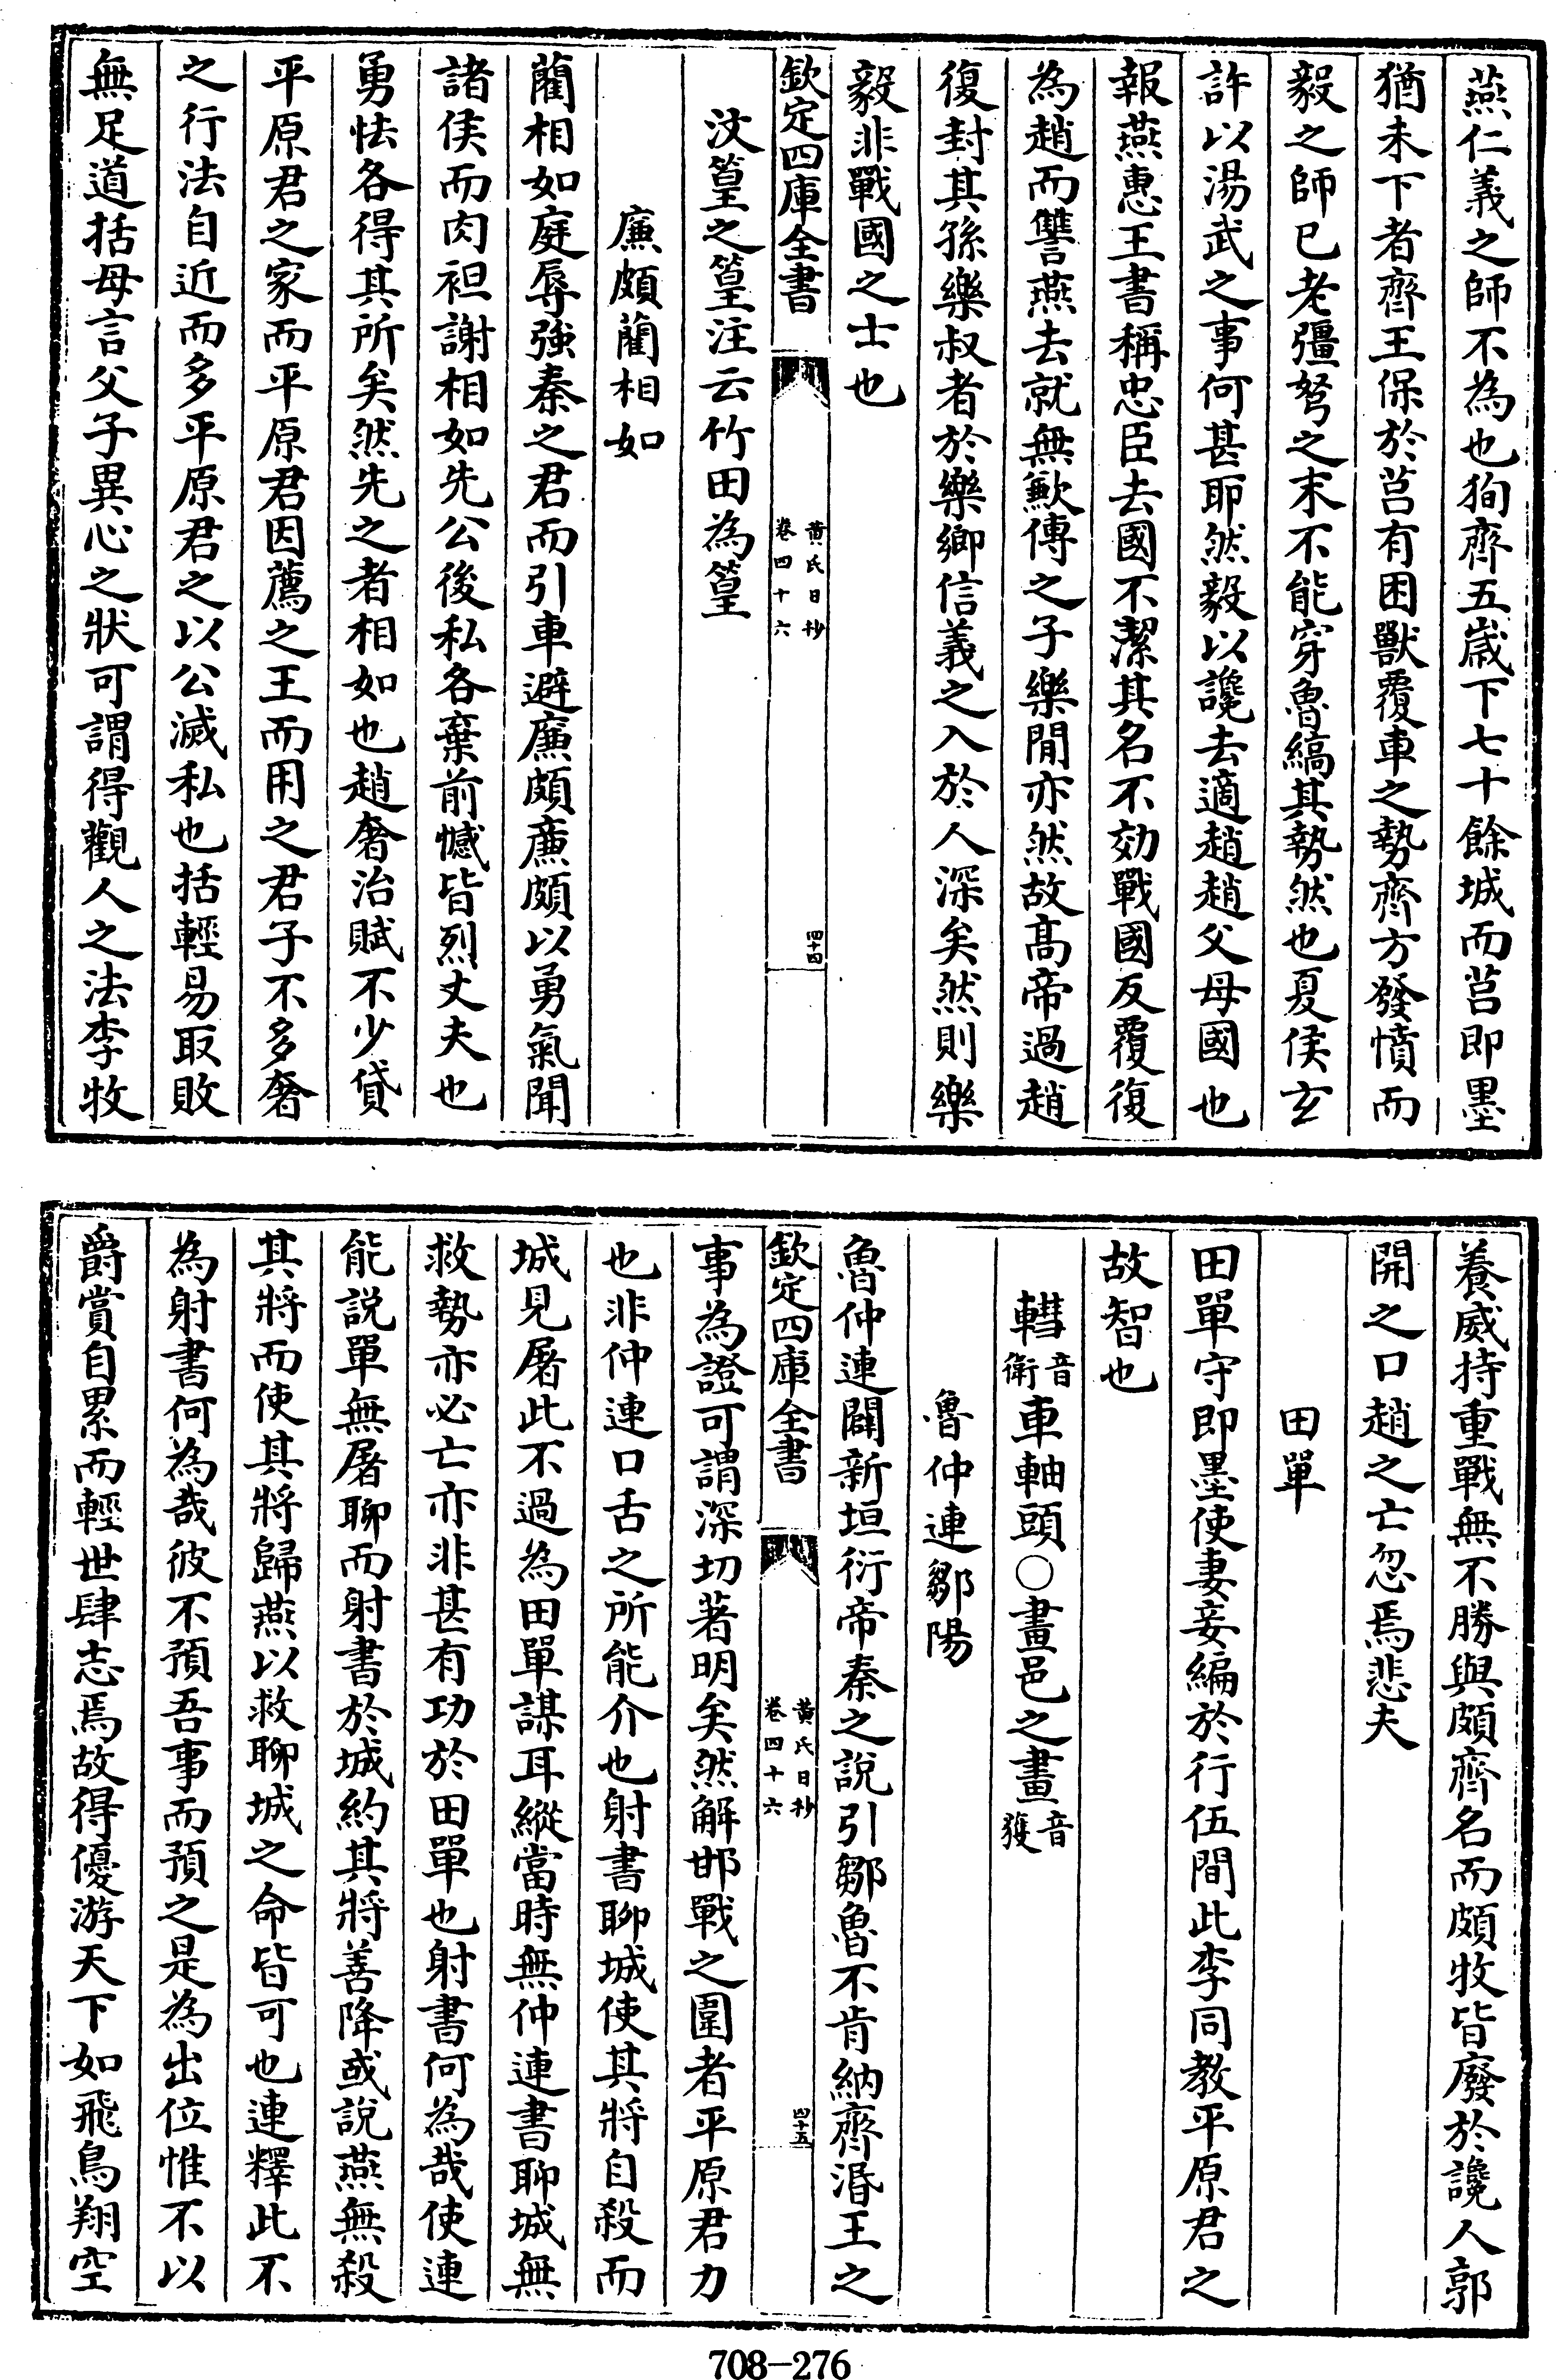 燕仁義之師不為也狥齊五嵗下七十餘城而莒即墨
猶未下者齊王保於莒有困獸覆車之勢齊方發憤而
毅之師已老彊弩之末不能穿魯縞其勢然也夏侯玄
許以湯武之事何甚耶然毅以讒去適趙趙父母國也
報燕惠王書稱忠臣去國不潔其名不効戰國反覆復
為趙而讐燕去就無歉傳之子樂閒亦然故髙帝過趙
復封其孫樂叔者於樂鄉信義之入於人深矣然則樂
毅非戰國之士也
欽定四庫全書
黄氏日抄
卷四十六
四十四
汶篁之篁注云竹田為篁
廉頗藺相如
藺相如庭辱強秦之君而引車避廉頗廉頗以勇氣聞
諸侯而肉袒謝相如先公後私各棄前憾皆烈丈夫也
勇怯各得其所矣然先之者相如也趙奢治賦不少貸
平原君之家而平原君因薦之王而用之君子不多奢
之行法自近而多平原君之以公滅私也括輕易取敗
無足道括母言父子異心之狀可謂得觀人之法李牧
養威持重戰無不勝與頗齊名而頗牧皆廢於讒人郭
開之口趙之亡忽焉悲夫
田單
田單守即墨使妻妾編於行伍間此李同教平原君之
故智也
轊音衛車軸頭○畫邑之畫音獲
魯仲連鄒陽
魯仲連闢新垣衍帝秦之説引鄒魯不肯納齊湣王之
欽定四庫全書
黄氏日抄
卷四十六
四十五
事為證可謂深切著明矣然解邯戰之圍者平原君力
也非仲連口舌之所能介也射書聊城使其將自殺而
城見屠此不過為田單謀耳縱當時無仲連書聊城無
救勢亦必亡亦非甚有功於田單也射書何為哉使連
能説單無屠聊而射書於城約其將善降或説燕無殺
其將而使其將歸燕以救聊城之命皆可也連釋此不
為射書何為哉彼不預吾事而預之是為出位惟不以
爵賞自累而輕世肆志焉故得優游天下如飛鳥翔空
708-276